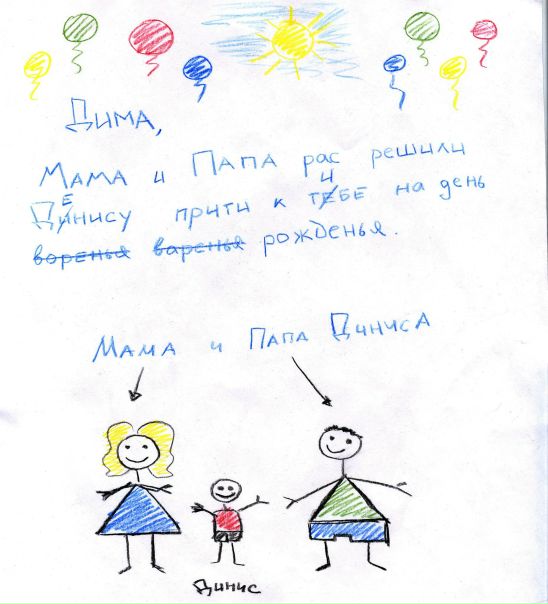 Дима,
Мама и Папа рас решили
Денису прити к тибе на день
воренья варенья рожденья.
Мама и Папа Диниса
Динис